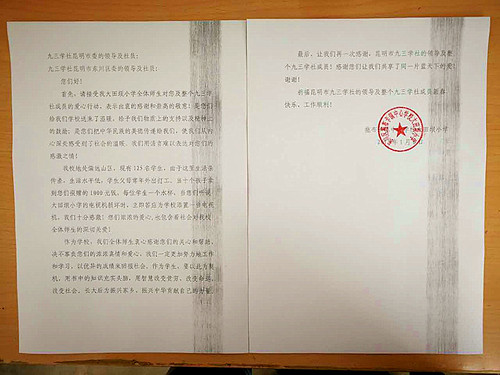 九三学社昆明市委的领导及社员:
九三学社昆明市东川区委的领导及社员:
您们好!
首先,请接受我大田坝小学全体师生对您及整个九三学
社成员的爱心行动,表示由衷的感谢和崇高的敬意!是您们
给我们学校送来了温暖,给予我们物质上的支持以及精神上
的鼓励;是您们把中华民族的美德传递给我们,使我们从内
心深处感受到了社会的温暖,我们用语言难以表达对您们的
感激之情!
我校地处偏远山区,现有125名学生,由于这里生活条
件差,生活水平低,学生父母常年外出打工。当十个孩子拿
到您们捐赠的1800元钱,每位学生一个水杯,
大田坝小学的电视机损坏时,立即答应为学校添置一台电视
机,我们十分感激!您们浓浓的爱心,也包含着社会对我校
全体师生的深切关爱!
作为学校,我们全体师生衷心感谢您们的关心和帮助,
决不辜负您们的滴滴真情和爱心,我们一定更加努力地工作
和学习,以优异的成绩来回报社会。作为学生,要以此为契
机,用书中的知识充实头脑,用智慧改变贫穷,改变命运,
改变社会。长大后为振兴家乡,振兴中华贡献自己的力量。
最后,让我们再一次感谢,昆明市九三学社的领导及整
个九三学社成员!感谢您们让我们共享了同一片蓝天下的爱!
谢谢!
祈福昆明市九三学社的领导及整个九三学社成员新春
快乐,工作顺利!
田坝小学